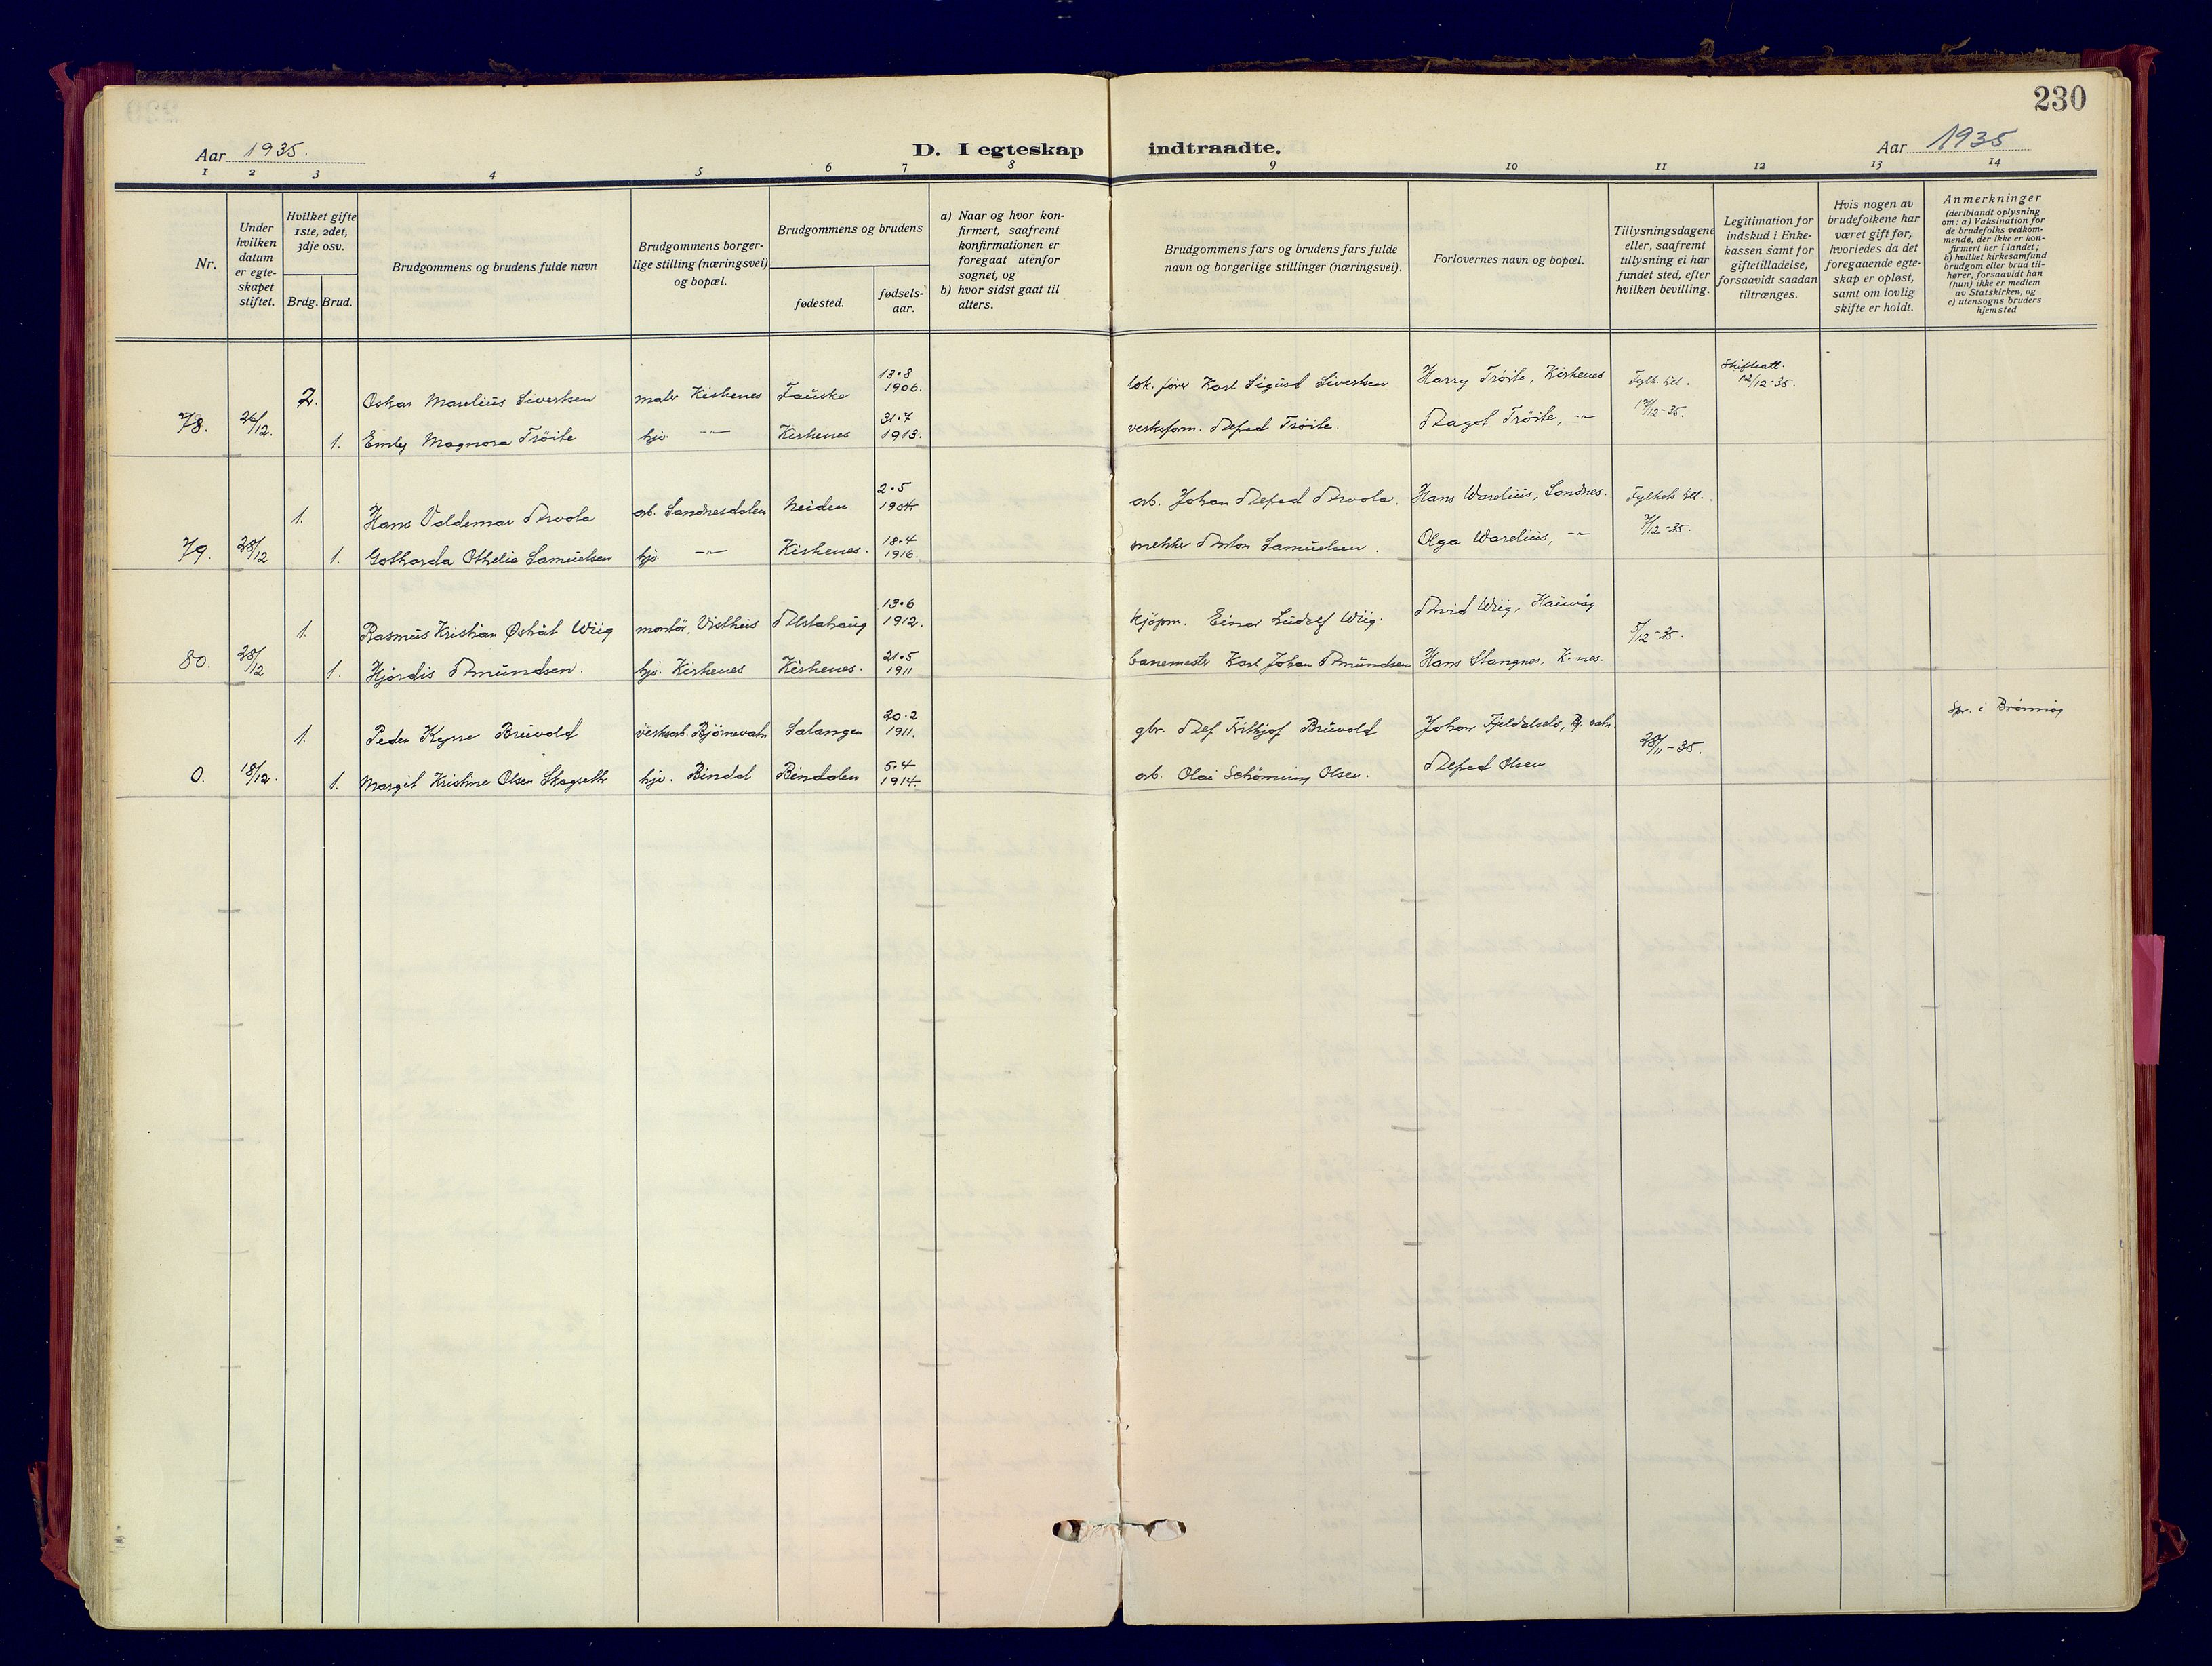 230
Aar 1935.
D. I egteskap indtraadte.
Aar 1935
1 2 3 4 5 6 7 8 9 10 11 12 13 14
Nr.
Under hvilken datum er egte-skapet stiftet.
Hvilket gifte 1ste, 2det, 3dje osv.
Brdg. Brud.
Brudgommens og brudens fulde navn
Brudgommens borger-lige stilling (næringsvei) og bopæl.
Brudgommens og brudens
fødested.
fødsels-aar.
a) Naar og hvor kon-firmert, saafremt konfirmationen er foregaat utenfor sognet, og
b) hvor sidst gaat til alters.
Brudgommens fars og brudens fars fulde navn og borgerlige stillinger (næringsvei).
Forlovernes navn og bopæl.
Tillysningsdagene eller, saafremt tillysning ei har fundet sted, efter hvilken bevilling.
Legitimation for indskud i Enke-kassen samt for giftetilladelse, forsaavidt saadan tiltrænges.
Hvis nogen av brudefolkene har været gift før, hvorledes da det foregaaende egte-skap er opløst, samt om lovlig skifte er holdt.
Anmerkninger
(deriblandt oplysning om: a) Vaksination for de brudefolks vedkom-mende, der ikke er kon-firmert her i landet; b) hvilket kirkesamfund brudgom eller brud til-hører, forsaavidt han (hun) ikke er medlem av Statskirken, og c) utensogns bruders hjemsted
2. Oskar Marelius Sivertsen maler Kirkenes Fauske 13.8 1906. lok. fører Karl Sigurd Sivertsen Harry Trøite, Kirkenes Fylk. bev. 12/12-35. Skifteatt. 12/12-35.
78. 26/12. 1. Emly Magnora Trøite hjv. -"- Kirkenes 31.7 1913. verksform. Alfred Trøite. Dagot Trøite, -"-
1. Hans Valdemar Arvola arb. Sandnesdalen Neiden 2.5 1904 arb. Johan Alfred Arvola. Hans Warelius, Sandnes. Fylkets bev. 7/12-35.
79. 28/12 1. Gotharda Othelie Samuelsen hjv. -"- Kirkenes. 18.4 1916. snekker Anton Samuelsen. Olga Warelius, -"-
1. Rasmus Kristian Østråt Wiig montør, Visthus Alstahaug 13.6 1912. kjøpm. Einar Ludolf Wiig. Arvid Wiig, Hauvåg 5/12-35.
80. 28/12 1. Hjørdis Amundsen. hjv. Kirkenes Kirkenes. 21.5 1911 banemester Karl Johan Amundsen Hans Stangnes, K-nes.
1. Peder Kyrre Bruvold verksarb. Bjørnevatn Salangen 20.2 1911. gbr. Alf Fritjof Bruvold Johan Fjeldalselv, Bj. vatn. 28/11-35. Spr. i Brønnøy
0. 18/12. 1. Margit Kristine Olsen Skogseth hjv. Bindal Bindalen 5.4 1914. arb. Olai Schønning Olsen. Alfred Olsen